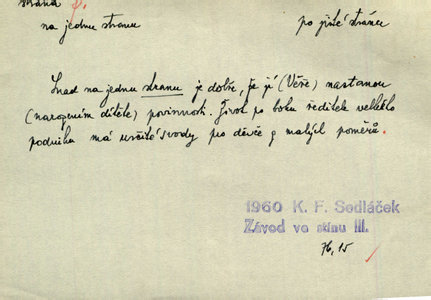 strana
na jednu stranu po jisté stránce
Snad na jednu stranu je dobře, že jí (Věře) nastanou
(narozením dítěte) povinnosti. Život po boku ředitele velkého
podniku má určité svody pro děvče z malých poměrů.
1960 K. F. Sedláček
Závod ve stínu III.
76, 15